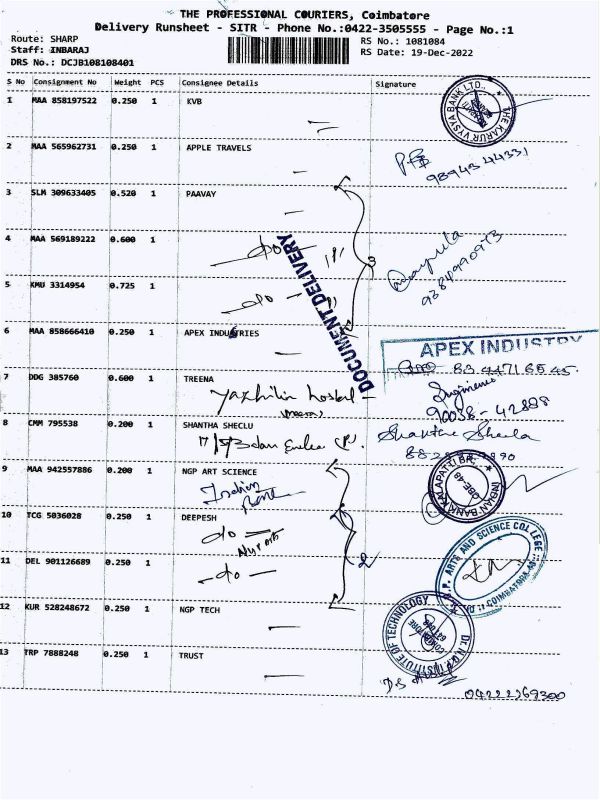 THE PROFESSIONAL COURIERS, Coimbatore
Delivery Runsheet - SITR - Phone No.:0422-3505555 - Page No.:1
Route: SHARP
Staff: INBARAJ
DRS No.: DCJB108108401
RS No.: 1081084
RS Date: 19-Dec-2022
S No Consignment No Weight PCS Consignee Details Signature
1 MAA 858197522 0.250 1 KVB
THE KARUR VYSYA BANK LTD.,
2 MAA 565962731 0.250 1 APPLE TRAVELS
98943 44331
3 SLM 309633405 0.520 1 PAAVAY
4 MAA 569189222 0.600 1
do
DOCUMENT DELIVERY
3
9384990973
5 KMU 3314954 0.725 1
do
6 MAA 858666410 0.250 1 APEX INDUSTRIES
APEX INDUSTRY
7 DDG 385760 0.600 1 TREENA
Yazhilin hostel
90038-42888
8 CMM 795538 0.200 1 SHANTHA SHECLU
Shantha Sheela
9 MAA 942557886 0.200 1 NGP ART SCIENCE
Indian Bank
INDIAN BANK KALAPATTI BR.
10 TCG 5036028 0.250 1 DEEPESH
do
ARTS AND SCIENCE COLLEGE
COIMBATORE-48
11 DEL 901126689 0.250 1
do
2
12 KUR 528248672 0.250 1 NGP TECH
Dr. N.G.P. INSTITUTE OF TECHNOLOGY
COIMBATORE
13 TRP 7888248 0.250 1 TRUST
04222369300